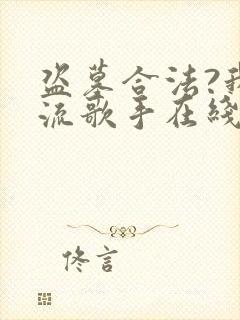 盗墓合法?我
流歌手在线
佟言